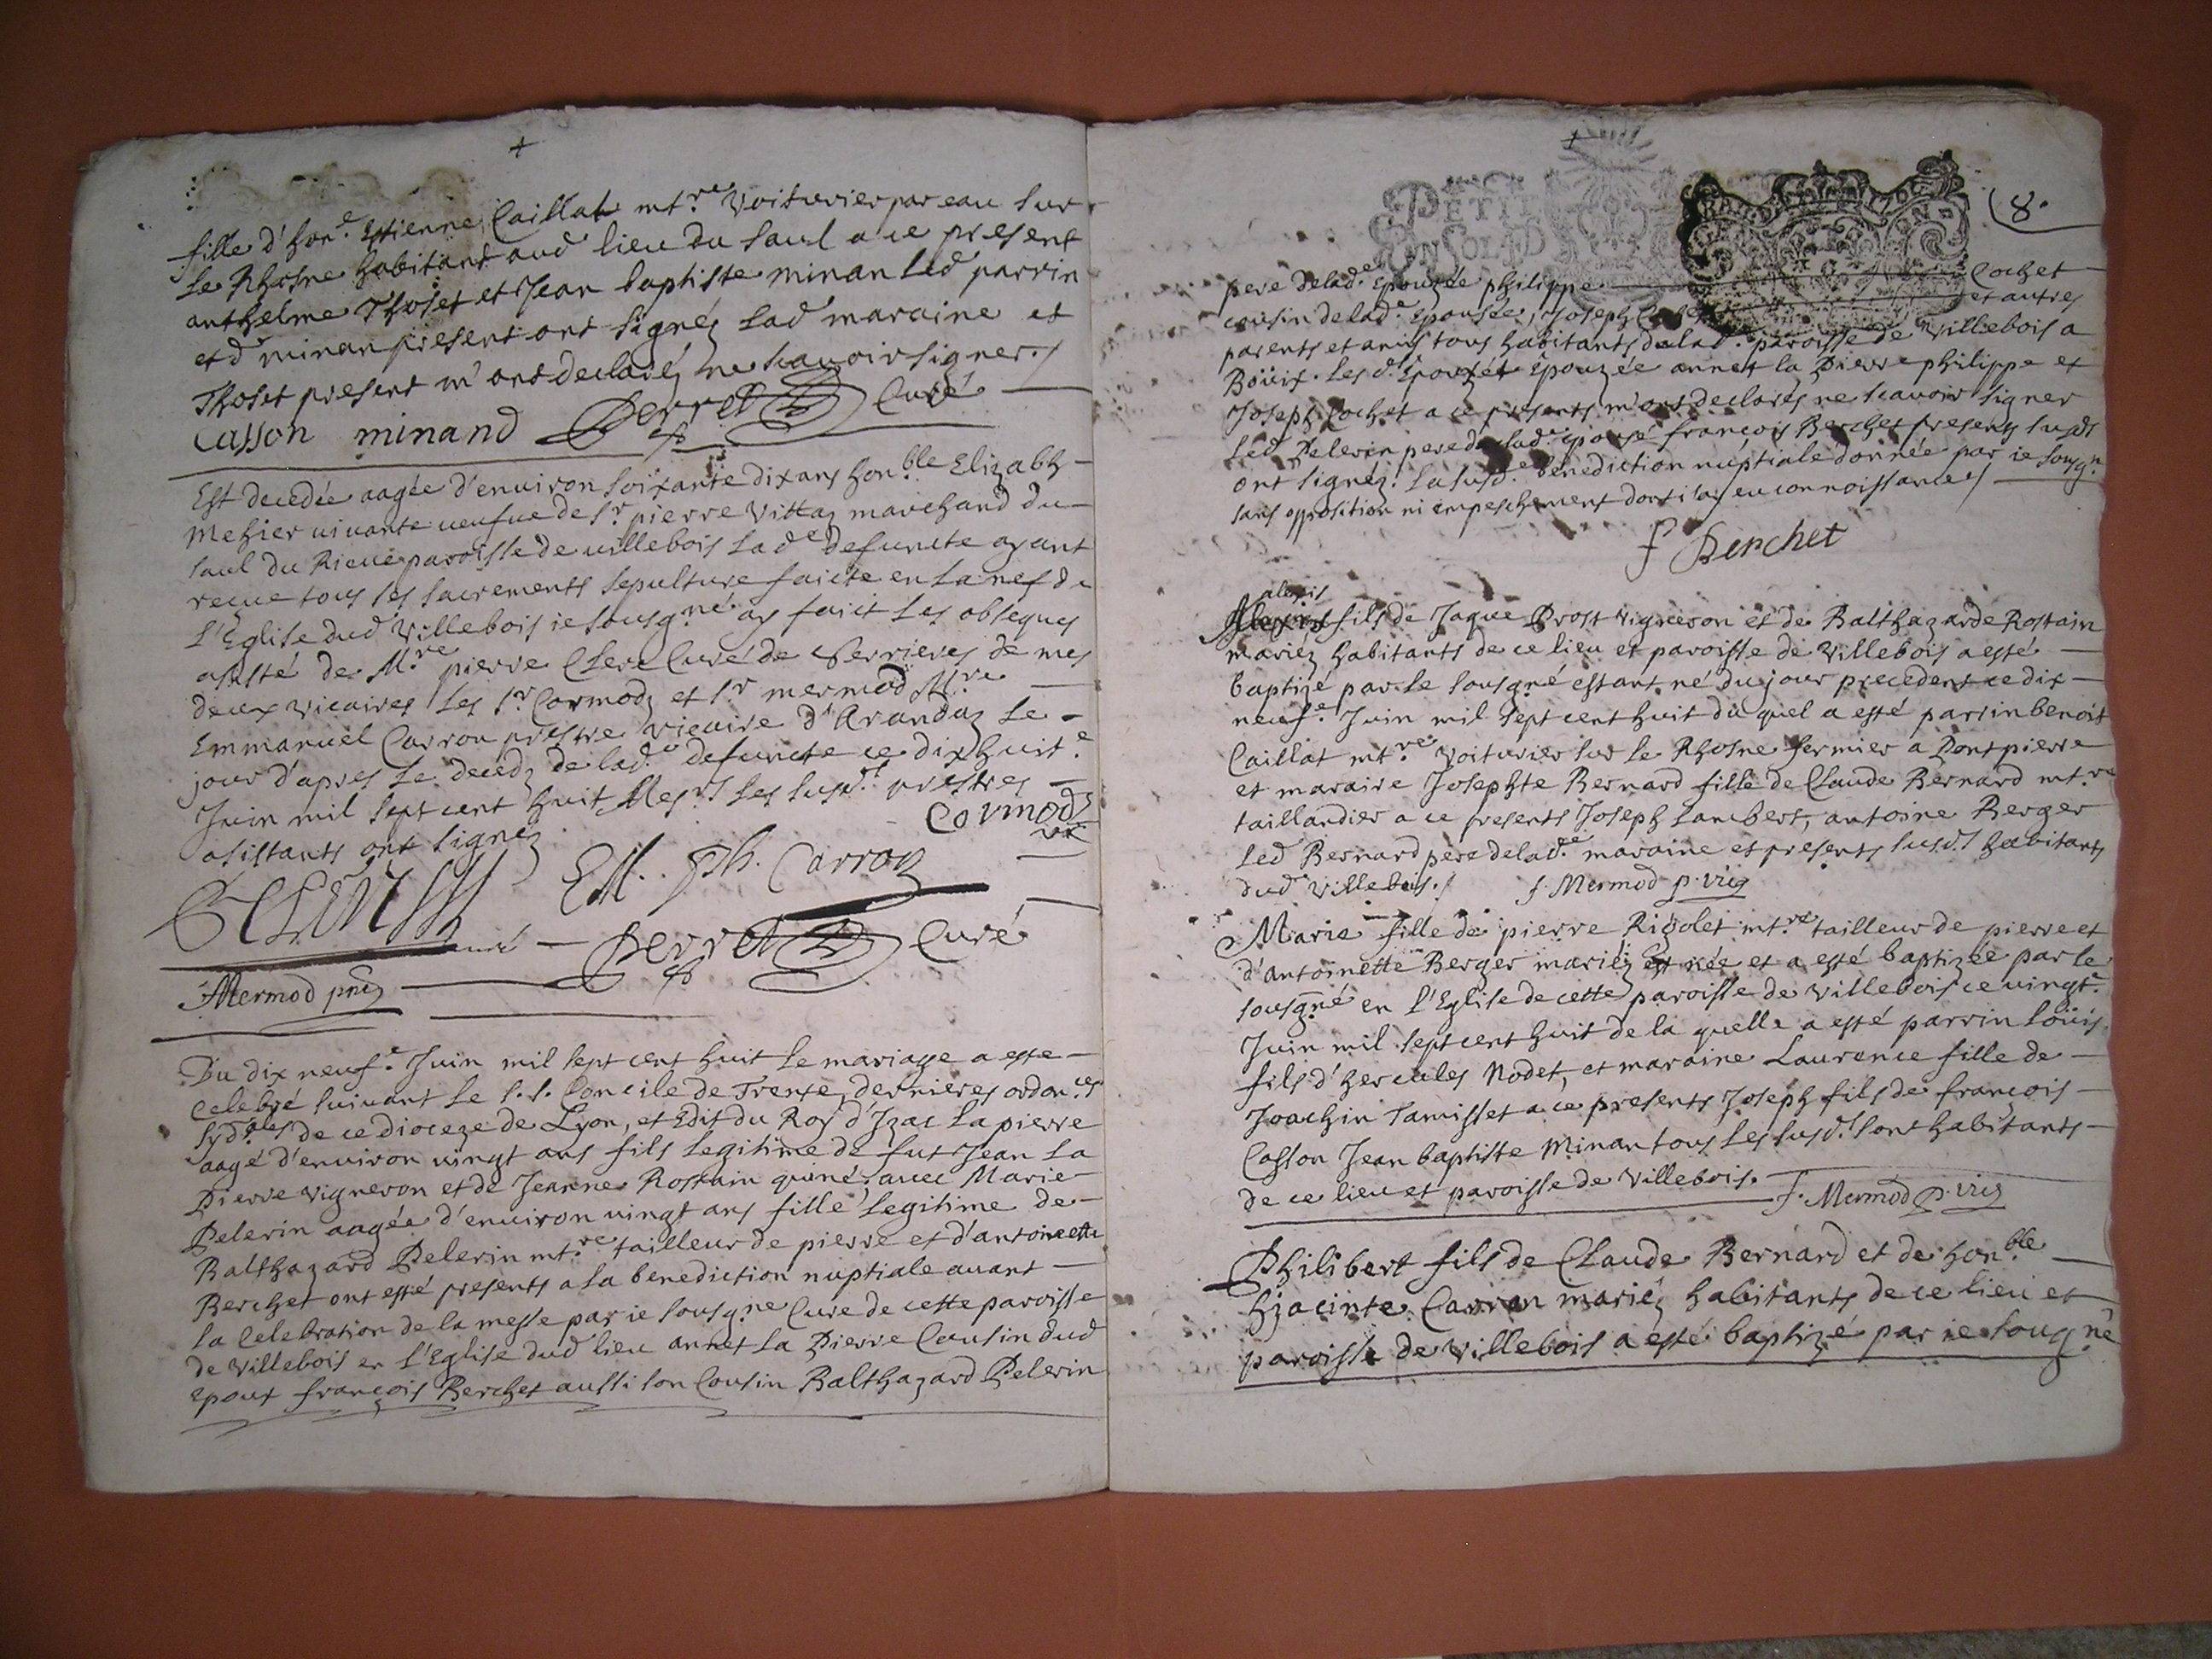 fille d'hon.e Estienne Caillat mt.re Voiturier par eau sur
le Rhosne habitant aud lieu du Saul a ce present
anthelme Thoset et Jean baptiste minan led parrin
et d minan present ont signéz lad maraine et
Thoset present m'ont declaréz ne scauoir signer./
Casson minand Perret Curé
Est decedée aagée d'enuiron soixante dix ans hon.ble Elizabh
Mehier uiuante ueufue de Sr pierre Vittaz marchand du
saul du Rieue paroisse de uillebois lade defuncte ayant
reçue tous les sacrements sepulture faicte en la nef de
l'Eglise dud Villebois ie sousg.né ay faict les obseques
assisté de M.re pierre Clerc Curé de Serrieres de mes
deux vicaires les Sr Cormodz et Sr mermod M.re
Emmanuel Carron prestre vicaire d'Arandaz le
jour d'apres le decedz de lad.e defuncte ce dixhuit.e
Juin mil sept cent huit Mes.rs les susd.t prestres
asistants ont signéz
Cormodz
vic
EM. Ph. Carron
curé Perret Curé
Mermod
Du dix neuf.e Juin mil sept cent huit le mariage a este
celebré suiuant le S.t. Concile de Trente, dernieres ordon.ces
syd.ales de ce dioceze de Lyon, et Edit du Roy d'Izac la pierre
aagé d'enuiron uingt ans fils legitime de fut Jean la
Pierre vigneron et de Jeanne Rostain auec Marie
Pelerin aagée d'enuiron uingt ans fille legitime de
Balthazard Pelerin mt.re tailleur de pierre et d'antoinette
Berchet ont esté presents a la benediction nuptiale auant
la Celebration de la messe par ie sousg.ne Cure de cette paroisse
de Villebois en l'Eglise dud lieu annet la Pierre Cousin dud
epoux françois Berchet aussi son Cousin Balthazard Pelerin
8.
pere de lad.e Epouzée philippe Cochet
cousin de lad.e Epousée, Joseph et autres
parents et amis tous habitants de lad. paroisse de Villebois a
Boüis. les d. Epouzée annet la Pierre philippe et
Joseph Cochet a ce presents m'ont declarés ne scauoir signer
led Pelerin pere de lad.e epousé françois Berchet presens susds
ont signéz. la susd.e benediction nuptiale donnée par ie sousg.n
sans opposition ni empeschement dont i'ay eu connoissance /
f Berchet
alexis
Alexis fils de Jaque Prost Vigneron et de Balthazarde Rostain
mariez habitants de ce lieu et paroisse de Villebois a esté
baptizé par le sousgné estant né du jour precedent ce dix
neuf.e Juin mil sept cent huit du quel a esté parrin benoit
Caillat mt.re Voiturier sur le Rhosne fermier a Pontpierre
et maraine Josephte Bernard fille de Claude Bernard mt.re
taillandier a ce presents Joseph Lambert, antoine Berger
led Bernard pere de lad.e maraine et presents susd.t habitants
dud Villebois./ f. Mermod p. vicz
Marie fille de pierre Rigolet mt.re tailleur de pierre et
d'antoinette Berger mariéz est née et a esté baptizée par le
sousgné en l'Eglise de cette paroisse de Villebois ce uingt.e
Juin mil sept cent huit de la quelle a esté parrin Loüis
fils d'hercules Nodet, et maraine Laurence fille de
Joachin Tamisset a ce presents Joseph fils de françois
Casson Jean baptiste Minan tous les susd.t sont habitants
de ce lieu et paroisse de Villebois.
f. Mermod p. vicz
Philibert fils de Claude Bernard et de hon.ble
hjacinte Carron mariéz habitants de ce lieu et
paroisse de Villebois a esté baptizé par ie sousgné